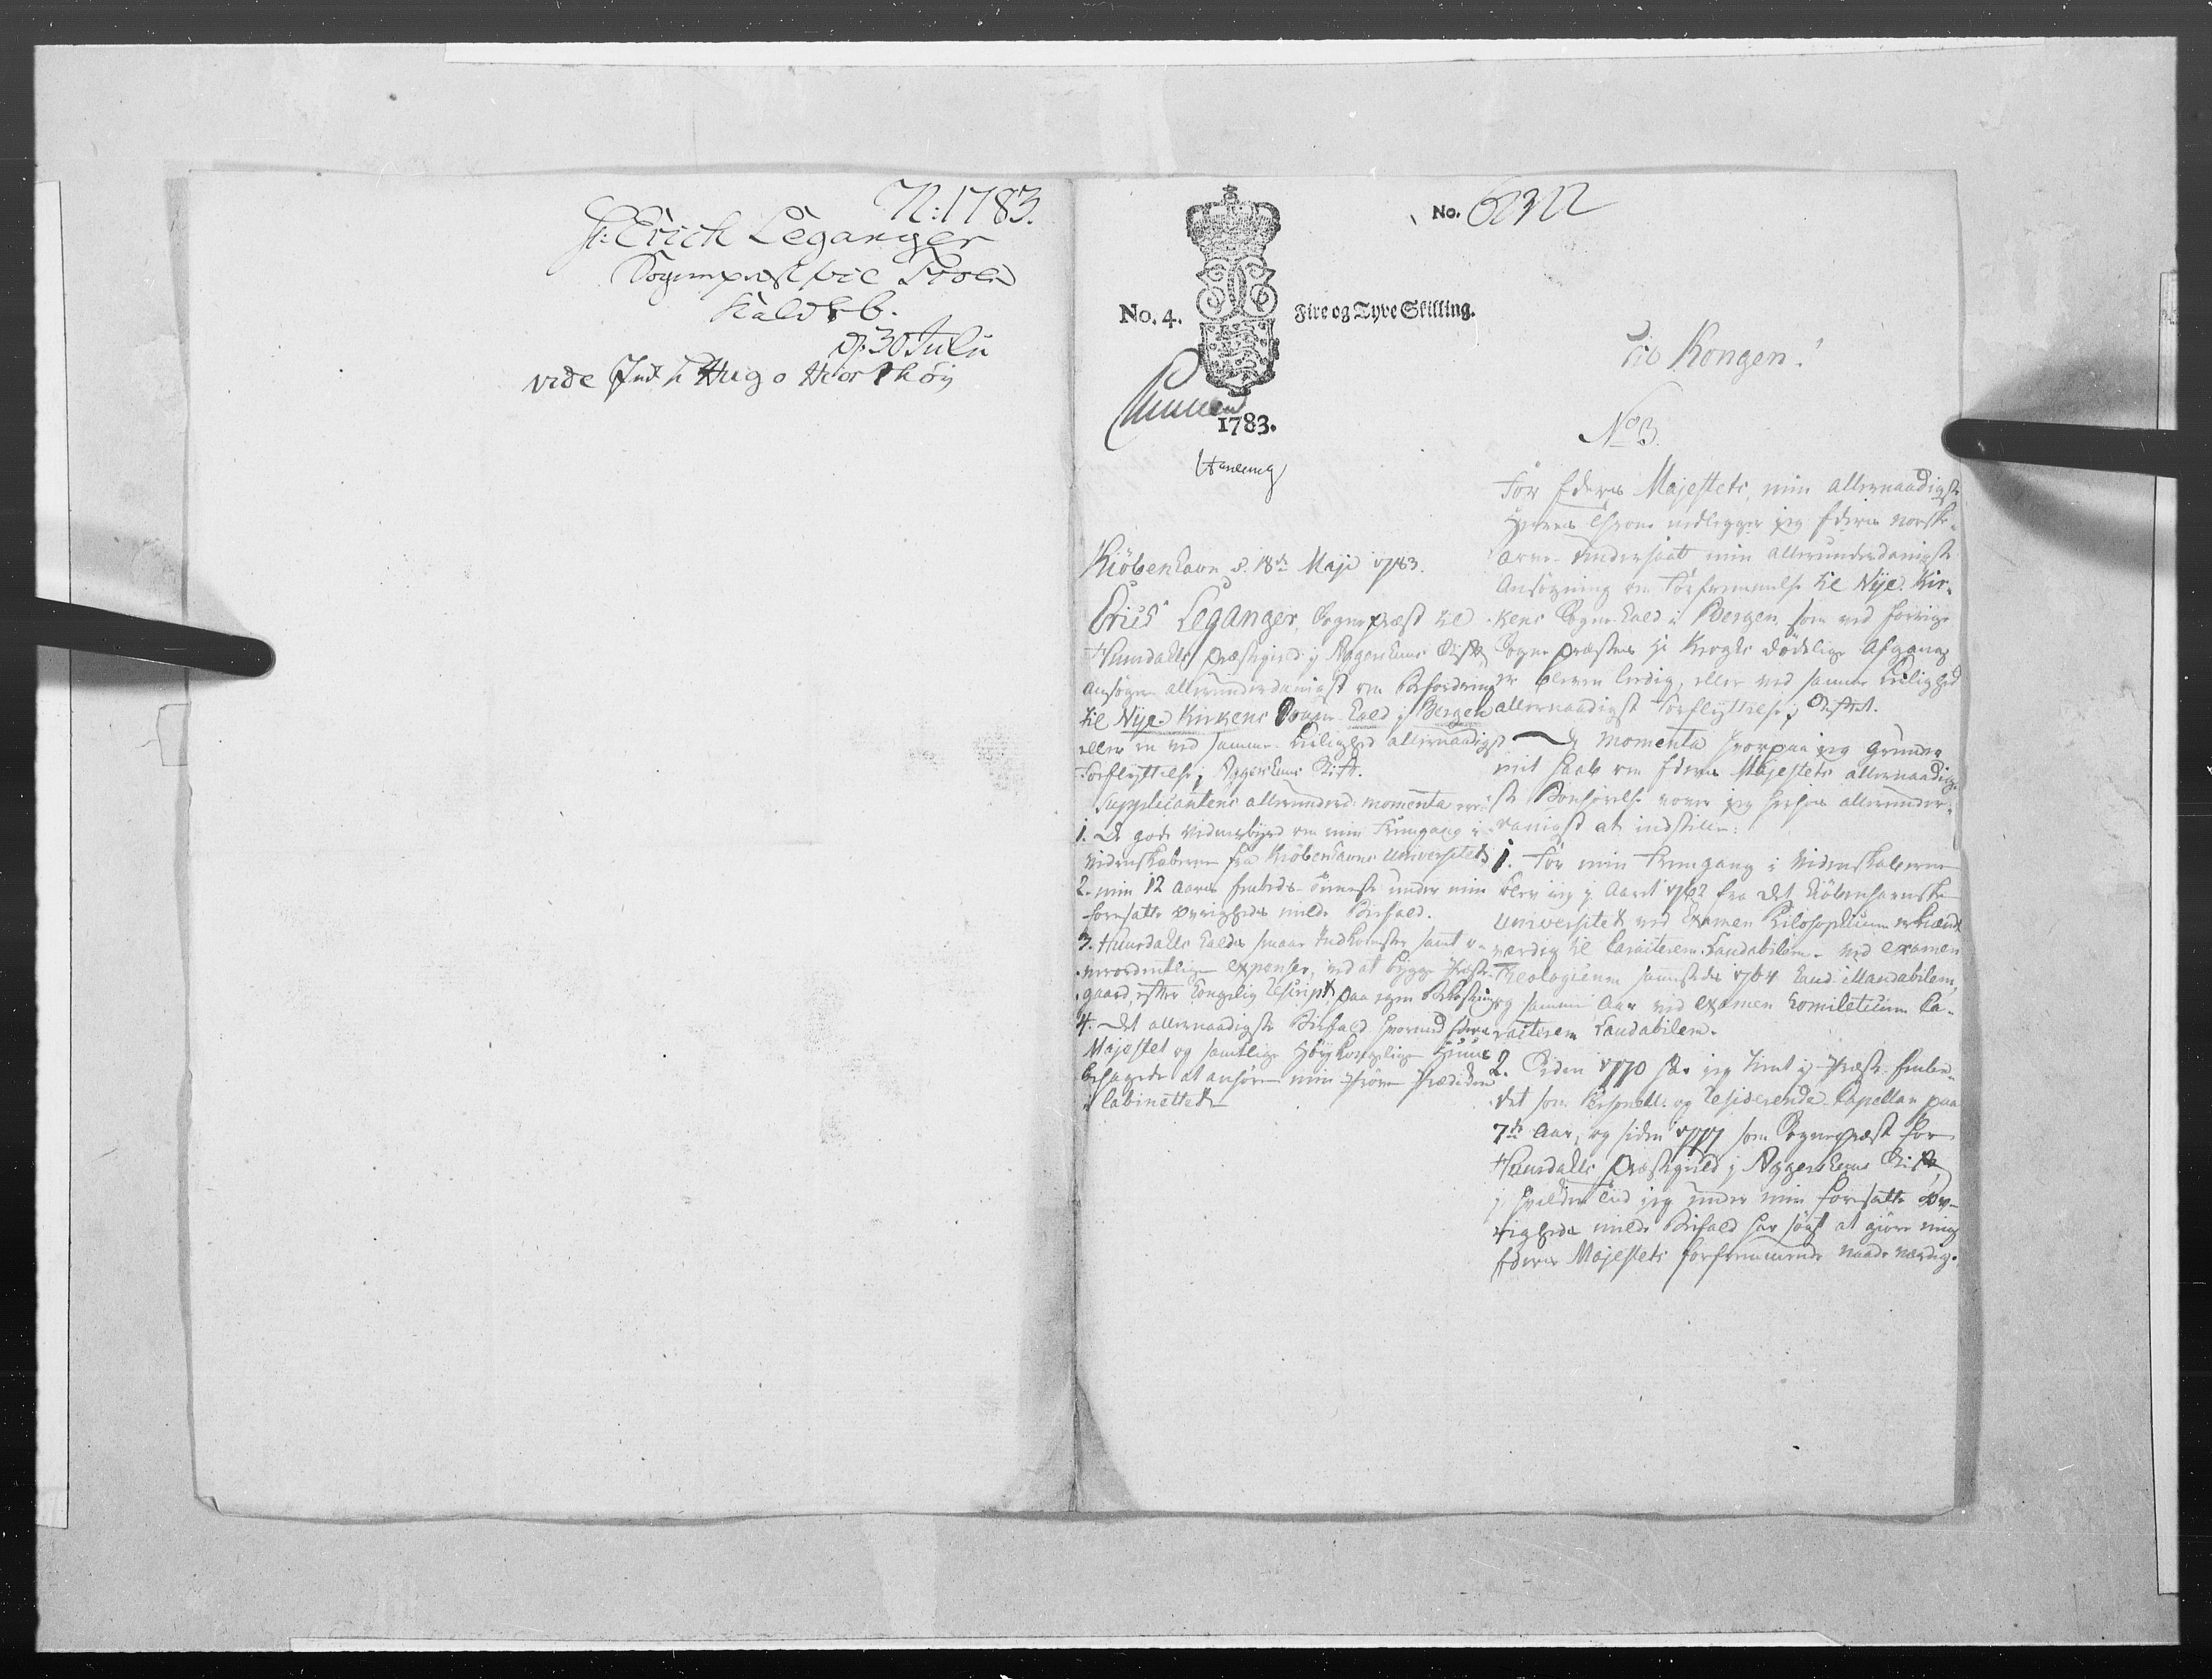 N: 1783.
Hr: Erich Leganger
Sognepræst til
Kald b.
d: 30 Julii
vide Hugo Hiorthöy
No. 6232
No. 4. Fire og Tyve Skilling.
1783.
Til Kongen!
No 3.
Kiöbenhavn d. 18de Maji 1783.
Erich Leganger, Sognepræst til
Huurdalls Præstegield i Aggershuus Stift,
ansøger allerunderdanigst om Befordring
til Nye-Kirkens Sogne-Kald i Bergen
eller en ved samme Leilighed allernaadigst
Forflyttelse i Aggershuus Stift.
Supplicantens allerunderd: momenta ere:
1. De gode Vidnesbyrd om min Fremgang i
Videnskaberne fra Kiöbenhavns Universitet
2. min 12 Aars Embeds-Tieneste under min
foresatte Øvrigheds milde Bifald.
3. Huurdalls Kalds smaae Indkomster samt u-
overordentlige expenser, ved at bygge Præste-
gaard, efter Kongelig Rescript, paa egen Bekostning
4. Det allernaadigste Bifald hvormed Eders
Majestet og samtlige Høy Kongelige Huus
behagede at anhøre min Prædiken
i Cabinettet
For Eders Majestets, min allernaadigste
Herres Throne nedlegger jeg Eders norske
arve-Undersaat min allerunderdanigste
Ansøgning om Forfremmelse til Nye-Kir-
kens Sogne-Kald i Bergen, som ved forrige
Sogne Præstens Hr Kroghs dödelige Afgang
er bleven ledig, eller ved samme Leilighed
allernaadigst Forflyttelse i Stiftet.
De Momenta hvorpaa jeg grunder
mit Haab om Eders Majestets allernaadig-
ste Bønhørelse vover jeg herhos allerunder-
danigst at indstille:
1. For min Fremgang i Videnskaberne
blev jeg i Aaret 1762 fra det Kiöbenhavnske
Universitet ved Examen Philosophicum erkiendt
værdig til Caracterem Laudabilem. ved examen
Theologicum sammesteds 1764 haud illaudabilem,
og samme Aar ved examen homileticum Ca-
racterem Laudabilem.
2. Siden 1770 har jeg tient i Præste-Embe-
det som Personell- og Residerende-Capellan paa
7de Aar, og siden 1777 som Sognepræst for
Huurdalls Præstegield i Aggershuus Stift,
i hvilken Tiid jeg under min foresatte Øv-
righeds milde Bifald har søgt at giøre mig
Eders Majestets forfremmende Naade værdig.